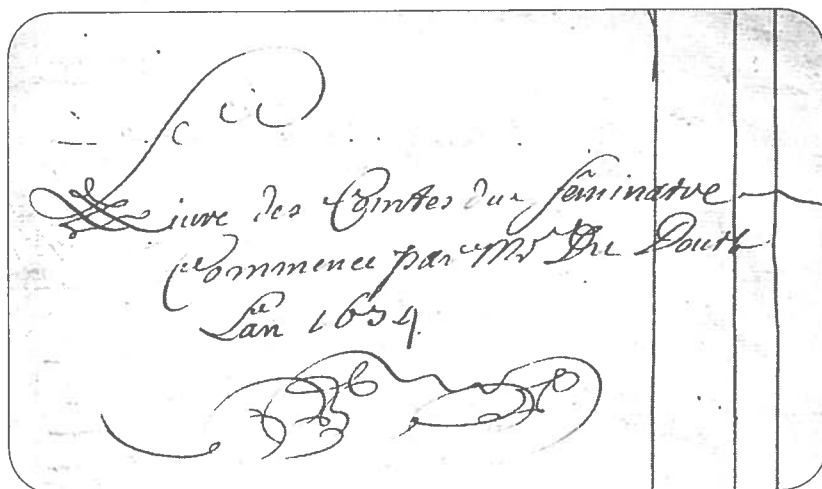 Livre des Comtes du séminaire
Commencé par Mr Du Doutt
L'an 1654